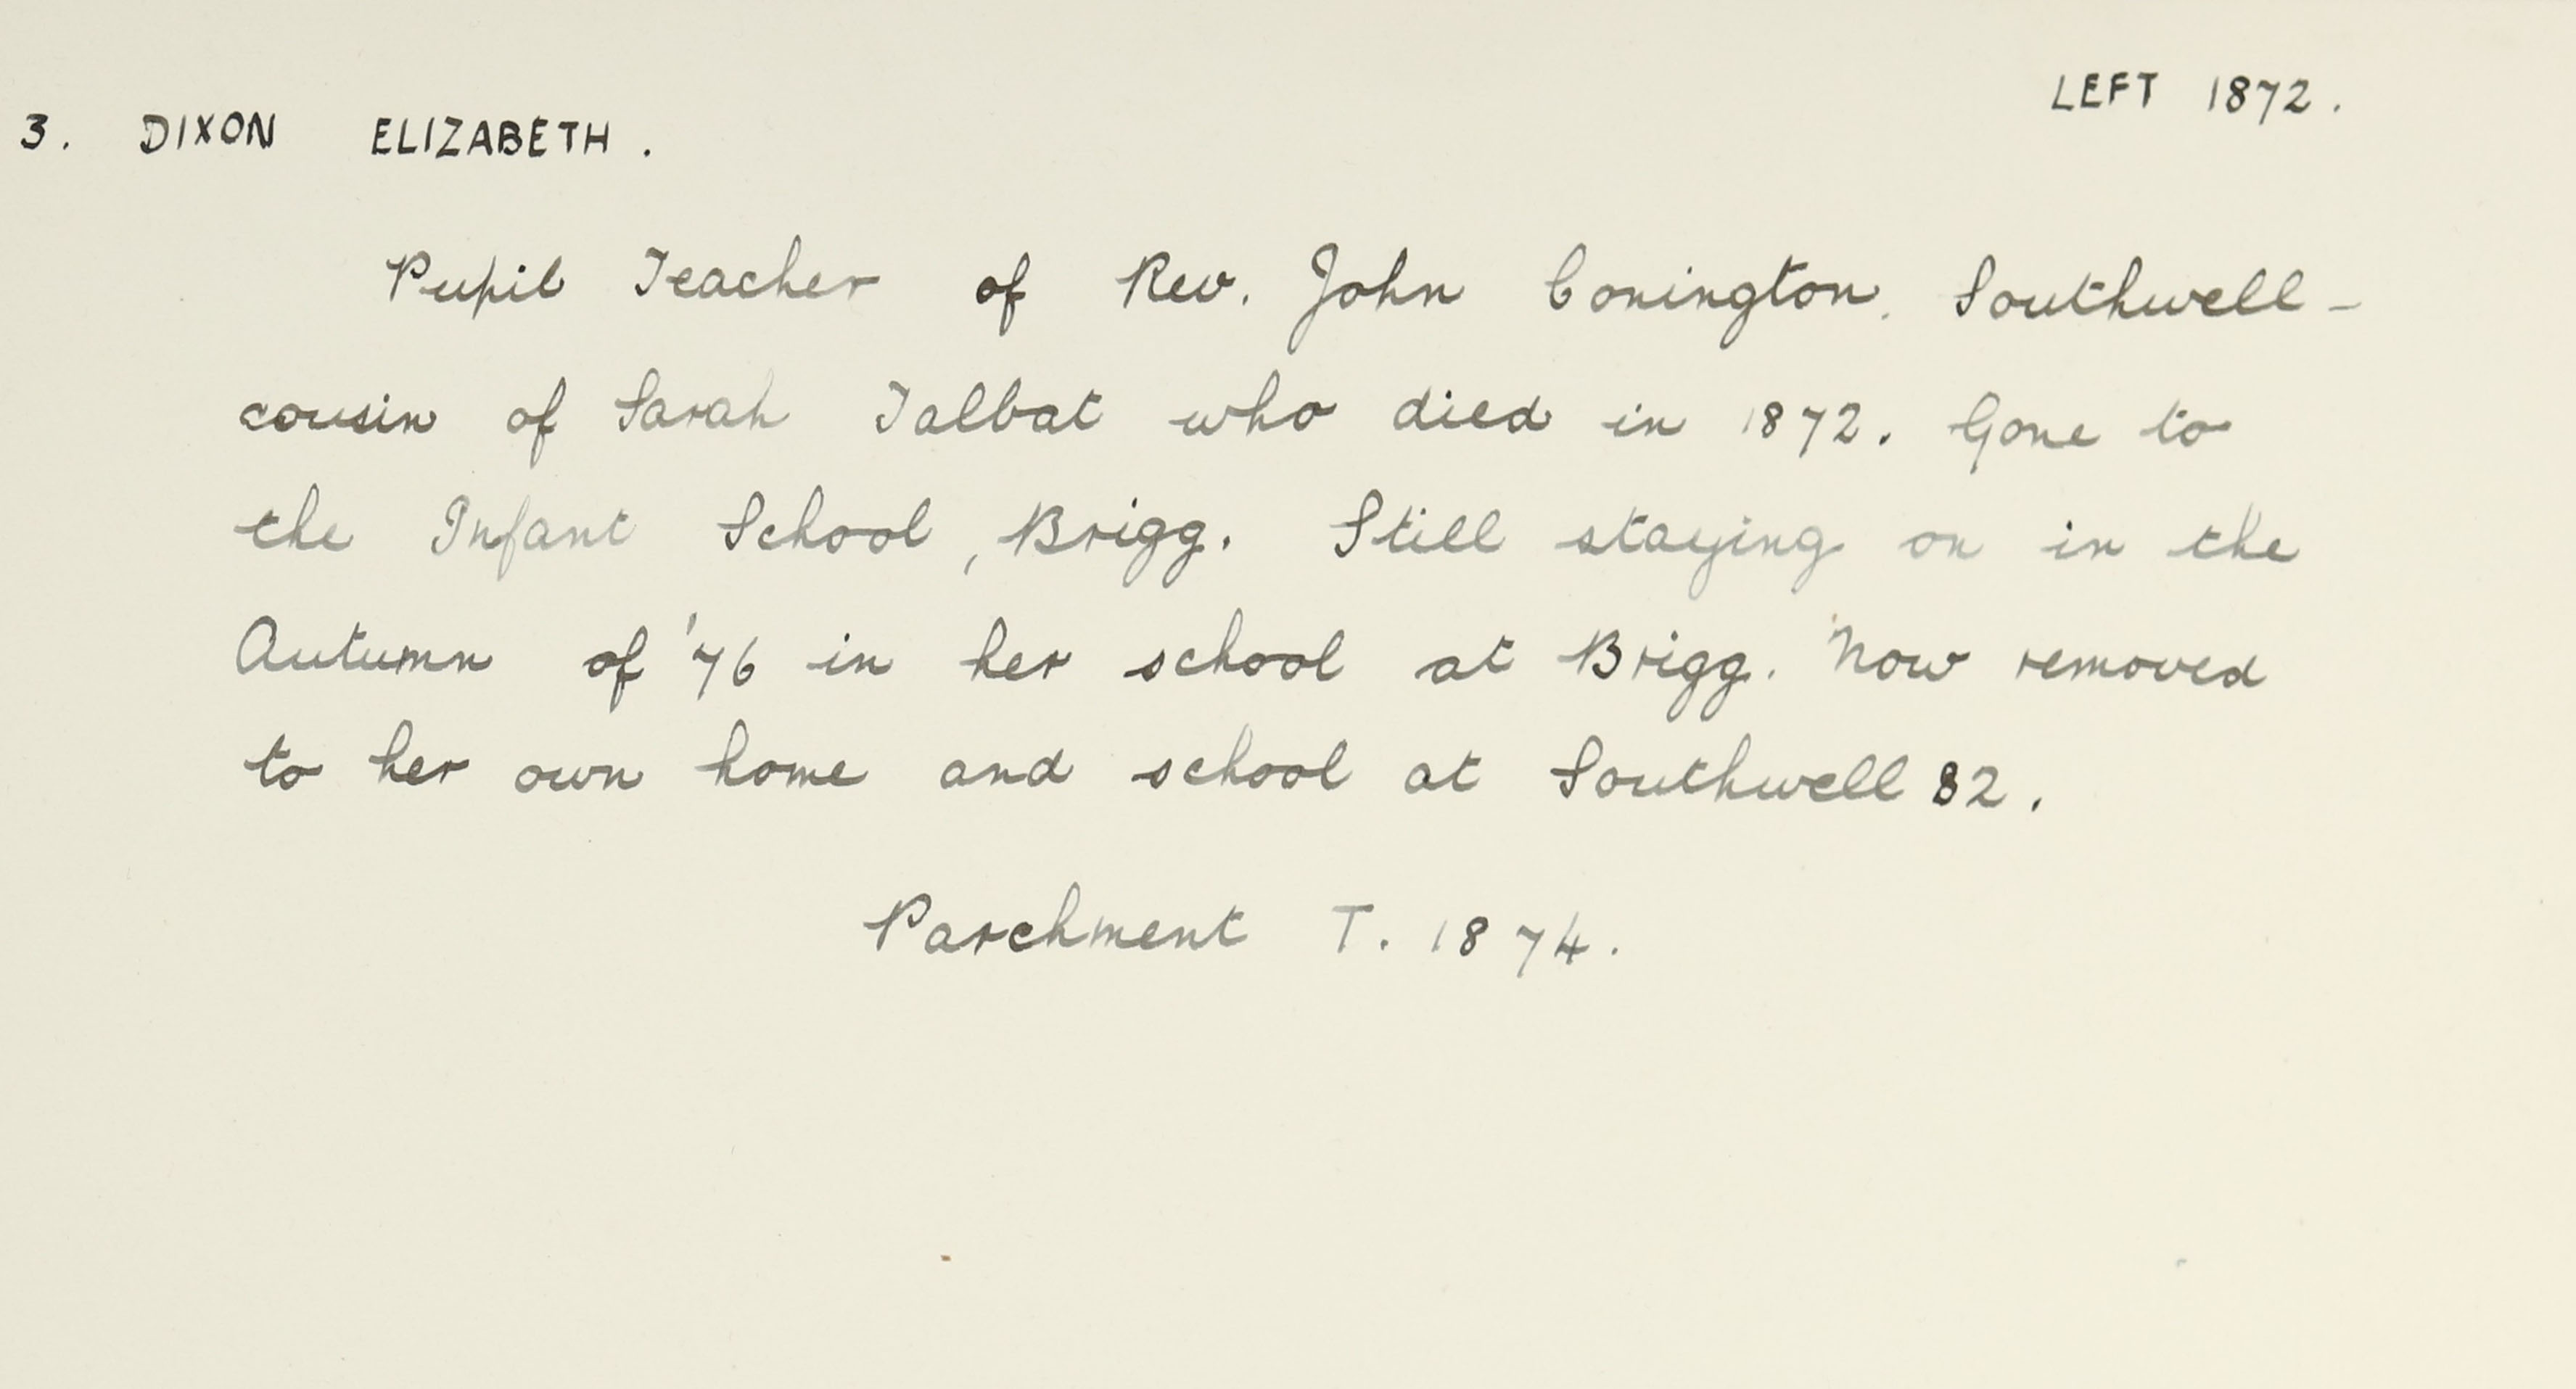 LEFT 1872.
3. DIXON ELIZABETH.
Pupil Teacher of Rev. John Conington, Southwell -
cousin of Sarah Talbat who died in 1872. Gone to
the Infant School, Brigg. Still staying on in the
Autumn of '76 in her school at Brigg. Now removed
to her own home and school at Southwell 82.
Parchment T. 1874.